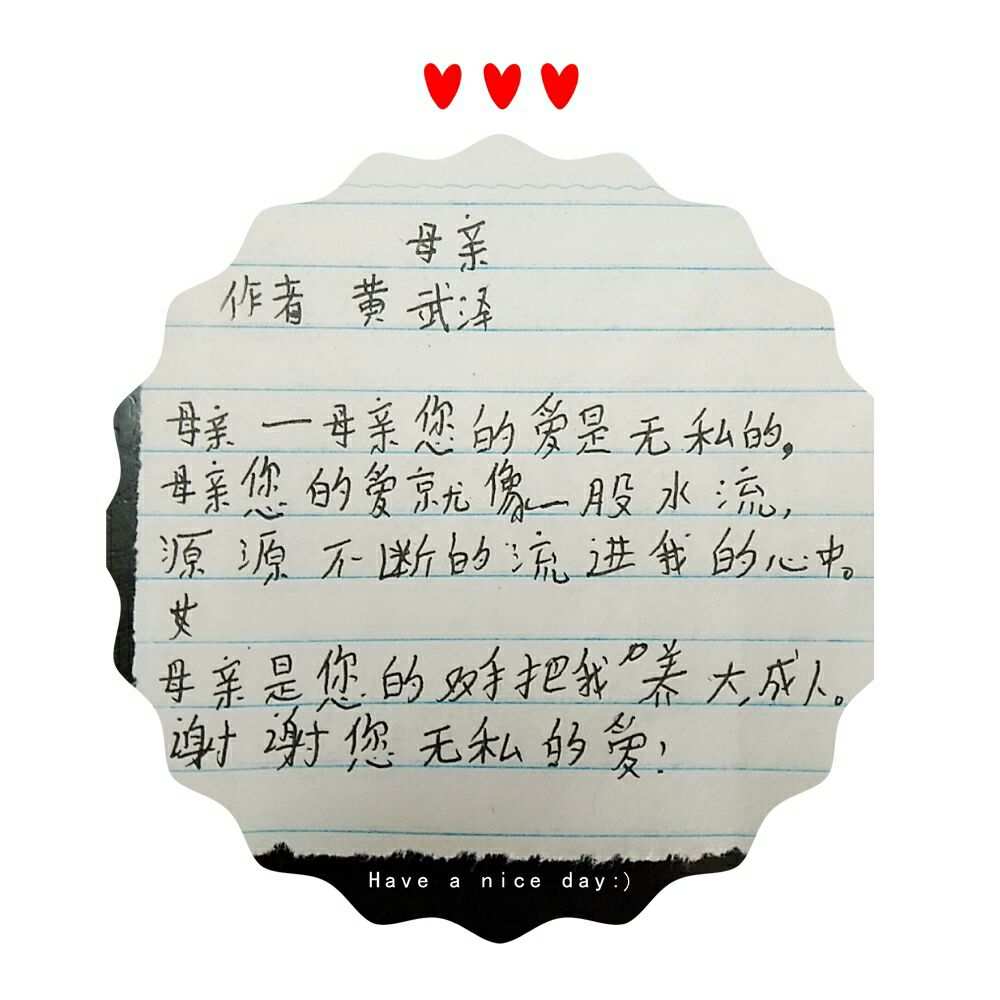 母亲
作者 黄武泽
母亲一母亲您的爱是无私的,
母亲您的爱就像一股水流,
源源不断的流进我的心中。
母亲是您的双手把我养大成人。
谢谢您无私的爱!
Have a nice day:)